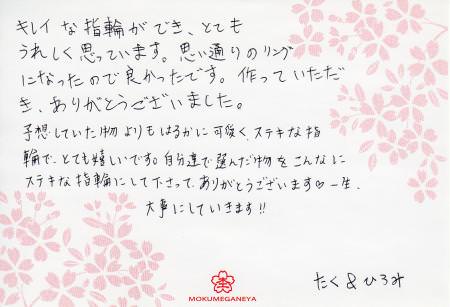 キレイな指輪ができ、とても
うれしく思っています。思い通りのリング
になったので良かったです。作っていただ
き、ありがとうございました。
予想していた物よりもはるかに可愛く、ステキな指
輪で、とても嬉しいです。自分達で選んだ物をこんなに
ステキな指輪にして下さって、ありがとうございます♡一生、
大事にしていきます!!
たく&ひろみ
MOKUMEGANEYA